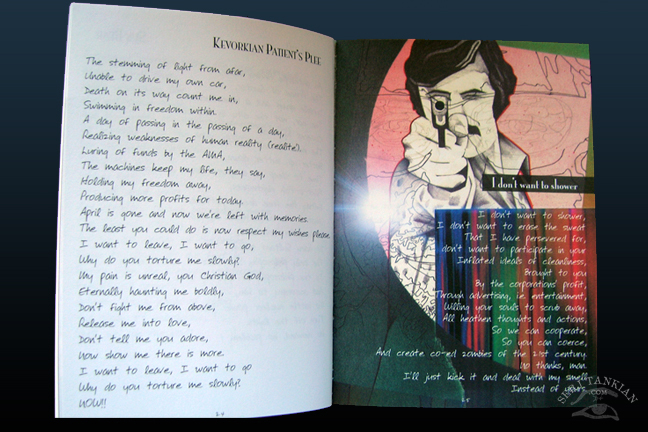 Kevorkian Patient's Plee
The stemming of light from afar,
Unable to drive my own car,
Death on its way count me in,
Swimming in freedom within.
A day of passing in the passing of a day,
Realizing weaknesses of human reality (realite').
Luring of funds by the AMA,
The machines keep my life, they say,
Holding my freedom away,
Producing more profits for today.
April is gone and now we're left with memories
The least you could do is now respect my wishes please.
I want to leave, I want to go,
Why do you torture me slowly?
My pain is unreal, you Christian God,
Eternally haunting me boldly,
Don't fight me from above,
Release me into love,
Don't tell me you adore,
Now show me there is more.
I want to leave, I want to go
Why do you torture me slowly?
NOW!!
24
I don't want to shower
I don't want to shower,
I don't want to erase the sweat
That I have persevered for,
don't want to participate in your
Inflated ideals of cleanliness,
Brought to you
By the corporations' profit,
Through advertising, i.e. entertainment,
Willing your souls to scrub away,
All heathen thoughts and actions,
So we can cooperate,
So you can coerce,
And create co-ed zombies of the 21st century.
No thanks, man.
I'll just kick it and deal with my smell
Instead of yours.
25
SERJ TANKIAN
.COM